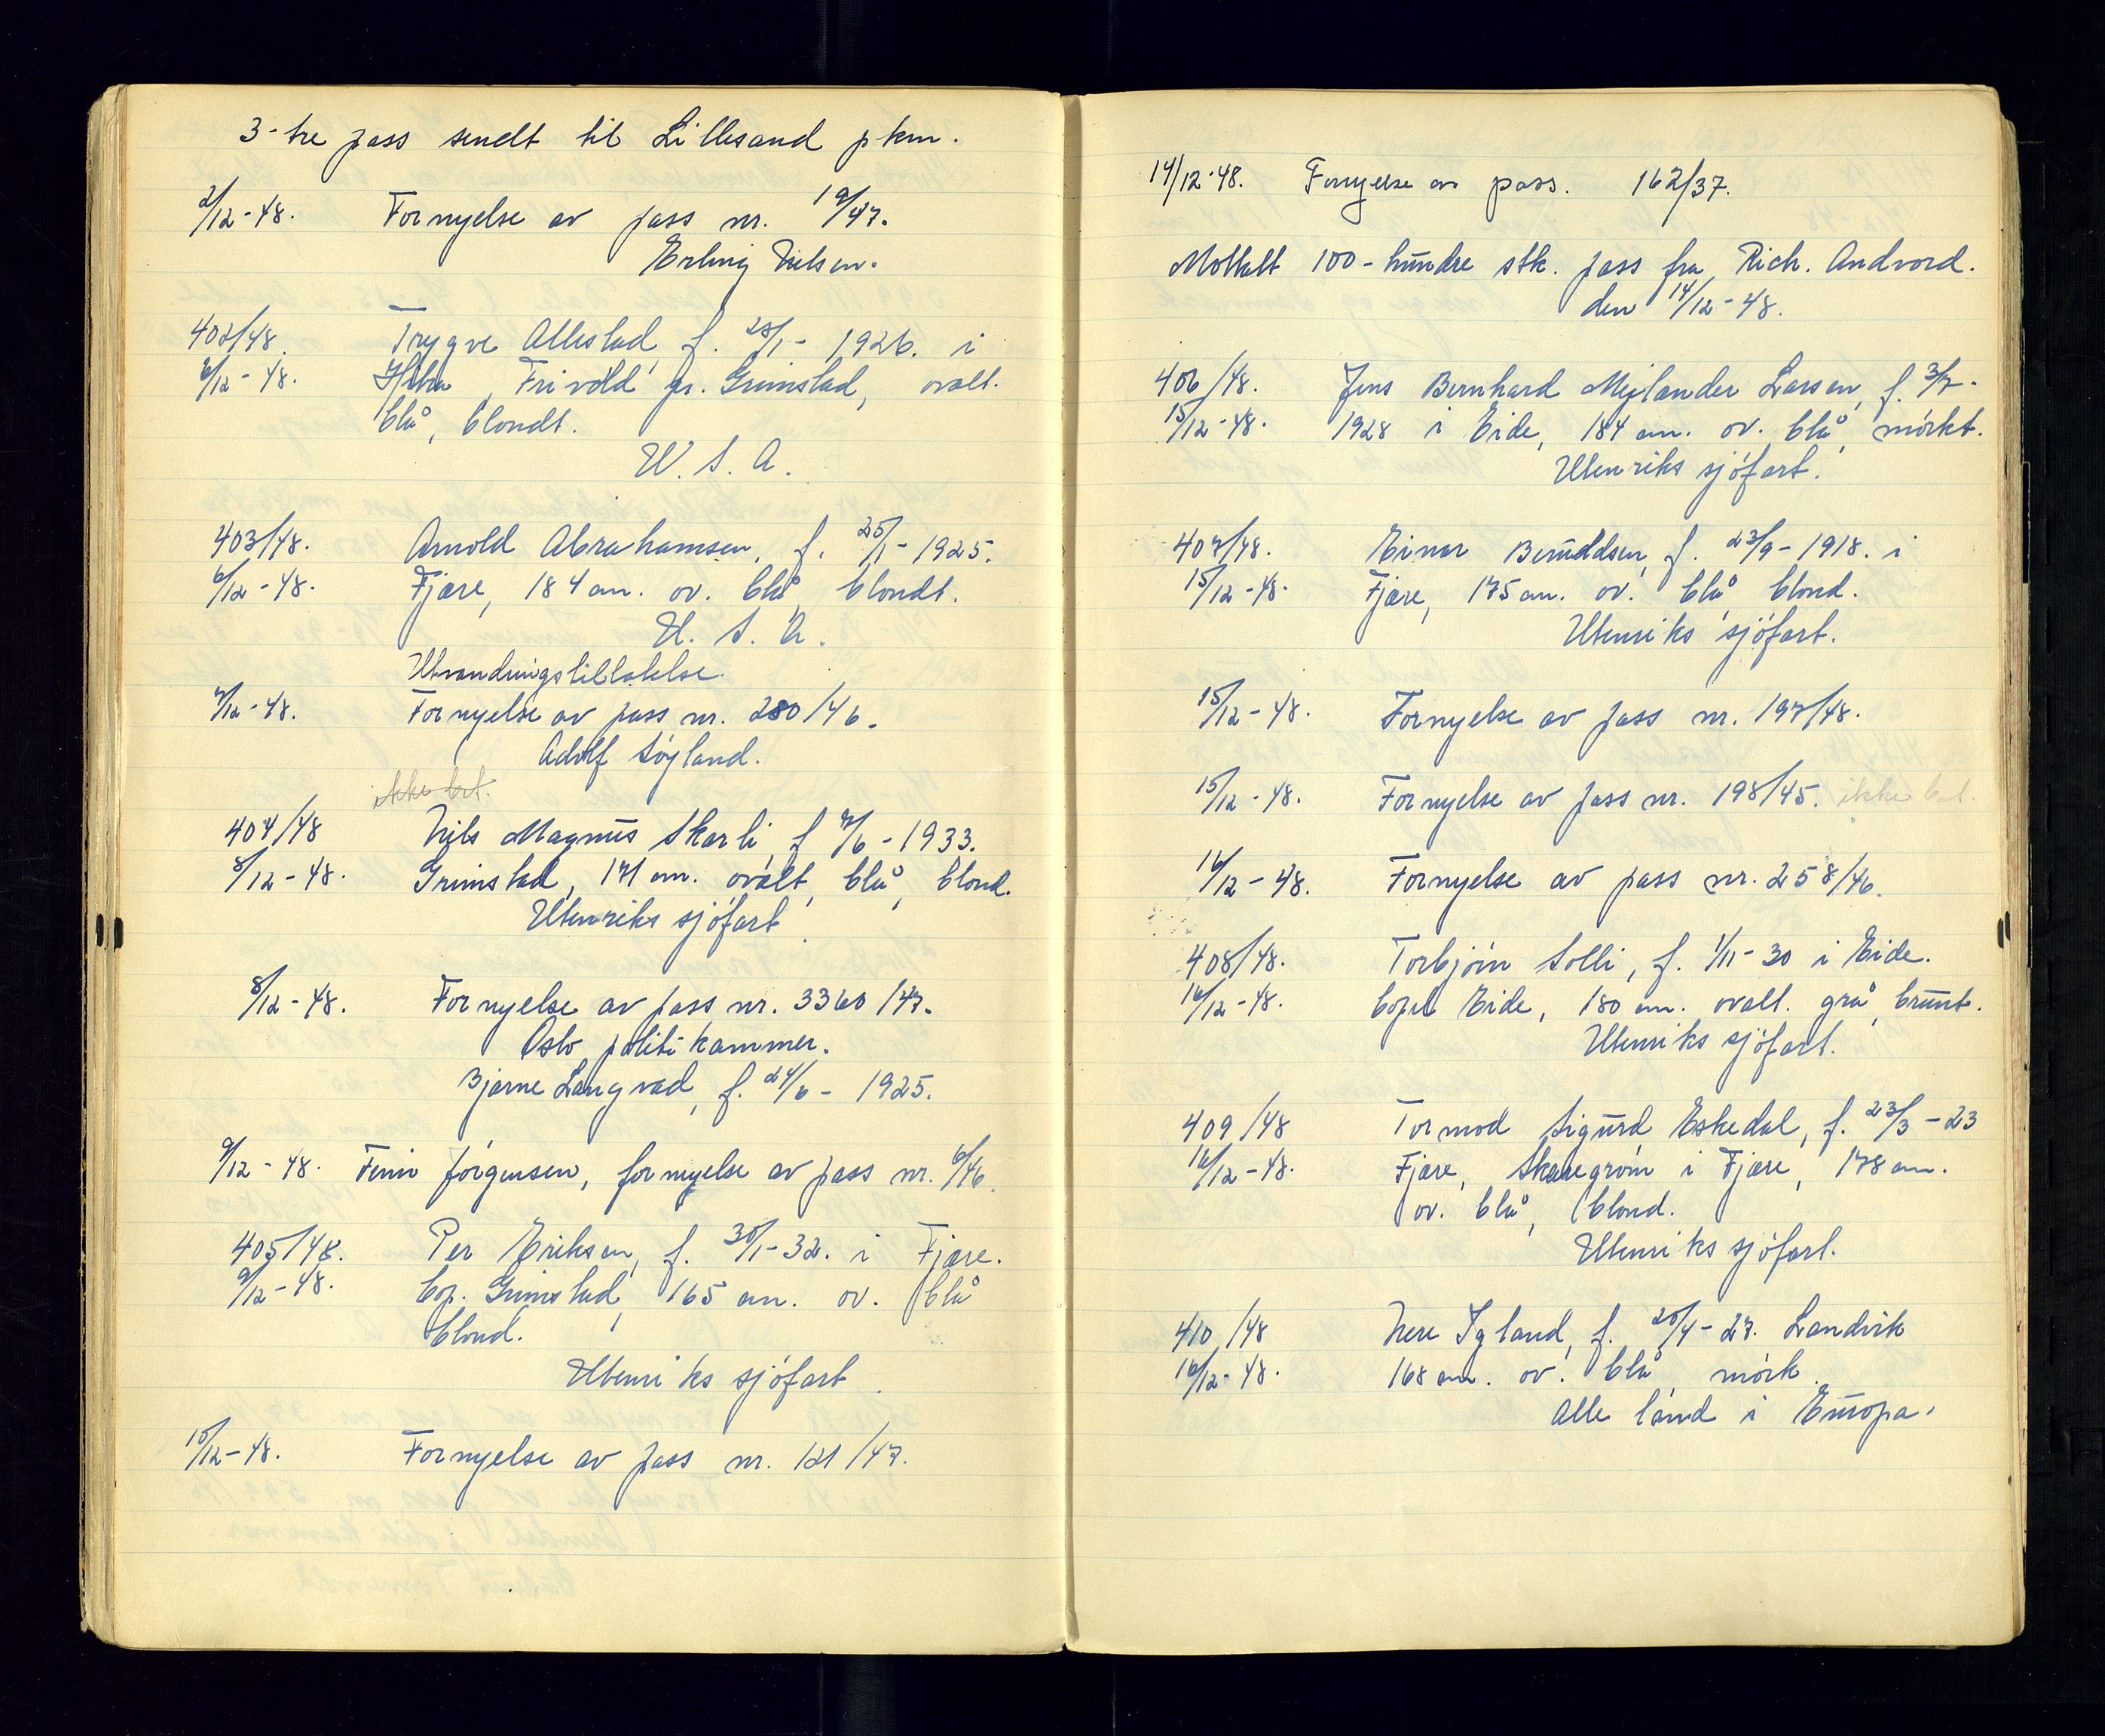 3-tre pass sendt til Lillesand pkm.
2/12-48. Fornyelse av pass nr. 19/47.
Erling Nilsen.
402/48. Trygve Allestad, f. 28/1- 1926. i
6/12-48. Frivold pr. Grimstad, ovalt.
blå, blondt.
U.S.A.
403/48. Arnold Abrahamsen, f. 25/1-1925.
6/12-48. Fjære, 184 cm. ov. blå, blondt.
U.S.A.
Utvandringstillatelse.
7/12-48. Fornyelse av pass nr. 280/46.
Adolf Søyland.
ikke bet.
404/48 Nils Magnus Skarli, f 7/6-1933.
8/12-48. Grimstad, 171 cm. ovalt, blå, blond.
Utenriks sjøfart.
8/12-48. Fornyelse av pass nr. 3360/47.
Oslo politikammer.
Bjarne Langvad, f. 24/6- 1925.
9/12-48. Finn Jørgensen, fornyelse av pass nr. 6/46.
405/48. Per Eriksen, f. 30/1-32. i Fjære.
9/12-48. bop. Grimstad, 165 cm. ov. blå
blond.
Utenriks sjøfart.
10/12-48. Fornyelse av pass nr. 121/47.
14/12-48. Fornyelse av pass. 162/37.
Mottatt 100-hundre stk. pass fra Rich. Andvord.
den 14/12-48.
406/48. Jens Bernhard Mejlander Larsen, f. 3/7-
15/12-48. 1928 i Eide, 184 cm. ov. blå, mørkt.
Utenriks sjøfart.
407/48. Einar Berüddsen, f. 23/9-1918. i
15/12-48. Fjære, 175 cm. ov. blå, blond.
Utenriks sjøfart.
15/12-48. Fornyelse av pass nr. 197/48.
15/12-48. Fornyelse av pass nr. 198/45. ikke bet.
16/12-48. Fornyelse av pass nr. 258/46.
408/48. Torbjørn Solli, f. 1/11-30 i Eide.
16/12-48. bopel Eide, 180 cm. ovalt. grå, brünt.
Utenriks sjøfart.
409/48 Tormod Sigürd Eskedal, f. 23/3-23
16/12-48. Fjære, Skaregrøm i Fjære, 178 cm.
ov. blå, blond.
Utenriks sjøfart.
410/48 Nere Igland, f. 20/4-27. Landvik
16/12-48. 168 cm. ov. blå mørk.
Alle land i Eüropa.